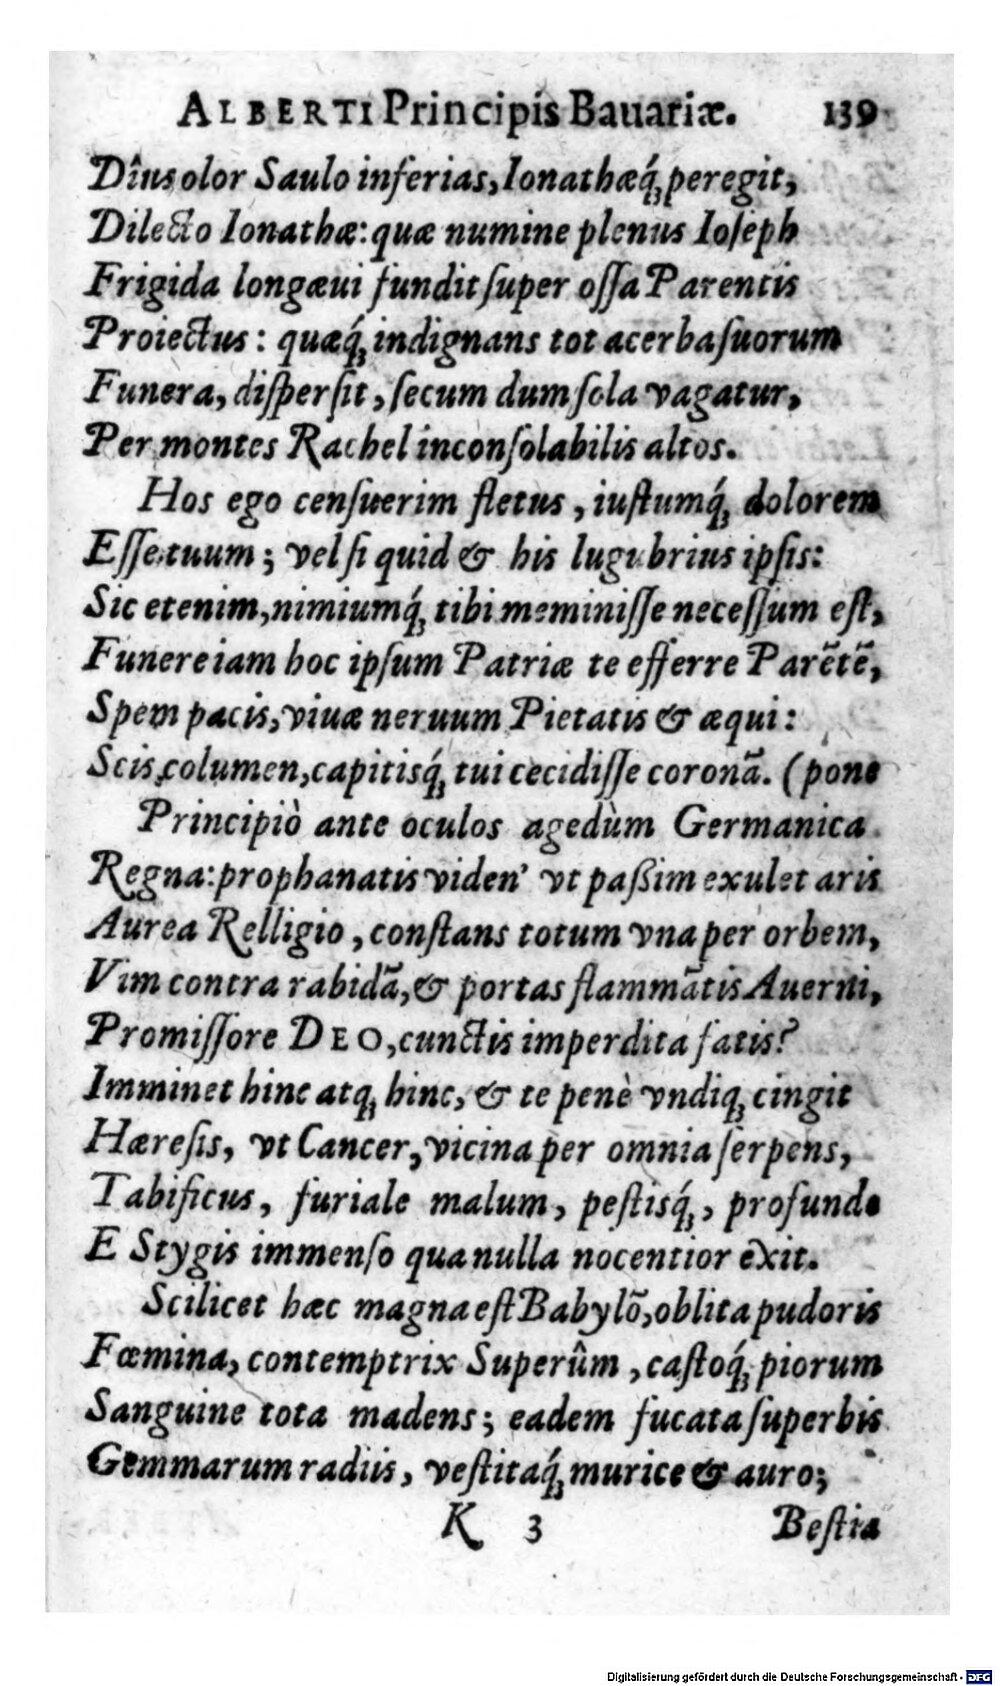 ALBERTI Principis Bauariæ. 139
Dîus olor Saulo inferias, Ionathæq́ꝫ peregit,
Dilecto Ionathæ: quæ numine plenus Ioseph
Frigida longæui fundit super ossa Parentis
Proiectus: quæq́ꝫ indignans tot acerba suorum
Funera, dispersit, secum dum sola vagatur,
Per montes Rachel inconsolabilis altos.
Hos ego censuerim fletus, iustumq́ꝫ dolorem
Esse tuum; vel si quid & his lugubrius ipsis:
Sic etenim, nimiumq́ꝫ tibi meminisse necessum est,
Funere iam hoc ipsum Patriæ te efferre Parẽtẽ,
Spem pacis, viuæ neruum Pietatis & æqui:
Scis columen, capitisq́ꝫ tui cecidisse coronã. (pone
Principiò ante oculos agedùm Germanica
Regna: prophanatis viden' vt paßim exulet aris
Aurea Relligio, constans totum vna per orbem,
Vim contra rabidã, & portas flammãtis Auerni,
Promissore DEO, cunctis imperdita fatis?
Imminet hinc atqꝫ hinc, & te penè vndiqꝫ cingit
Hæresis, vt Cancer, vicina per omnia serpens,
Tabificus, furiale malum, pestisq́ꝫ, profundo
E Stygis immenso qua nulla nocentior exit.
Scilicet hæc magna est Babylõ, oblita pudoris
Fœmina, contemptrix Superûm, castoq́ꝫ piorum
Sanguine tota madens; eadem fucata superbis
Gemmarum radiis, vestitaq́ꝫ murice & auro;
K 3 Bestia
Digitalisierung gefördert durch die Deutsche Forschungsgemeinschaft - DFG